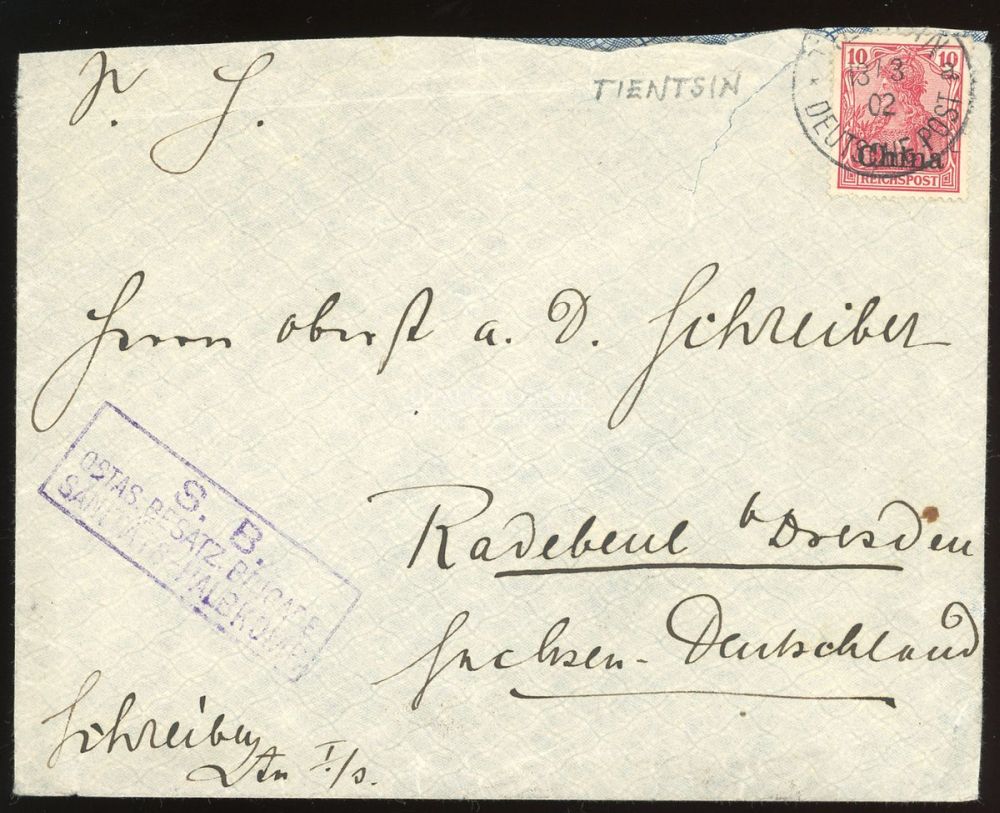 S. H.
TIENTSIN
TIENTSIN
13 3
02
DEUTSCHE POST
10 10
China
REICHSPOST
Herrn Oberst a. D. Schreiber
S. B.
OSTAS. BESATZ. BRIGADE
SANITÄTS-HALBKOMP.
Radebeul b/Dresden
Sachsen - Deutschland
Schreiber
I./S.